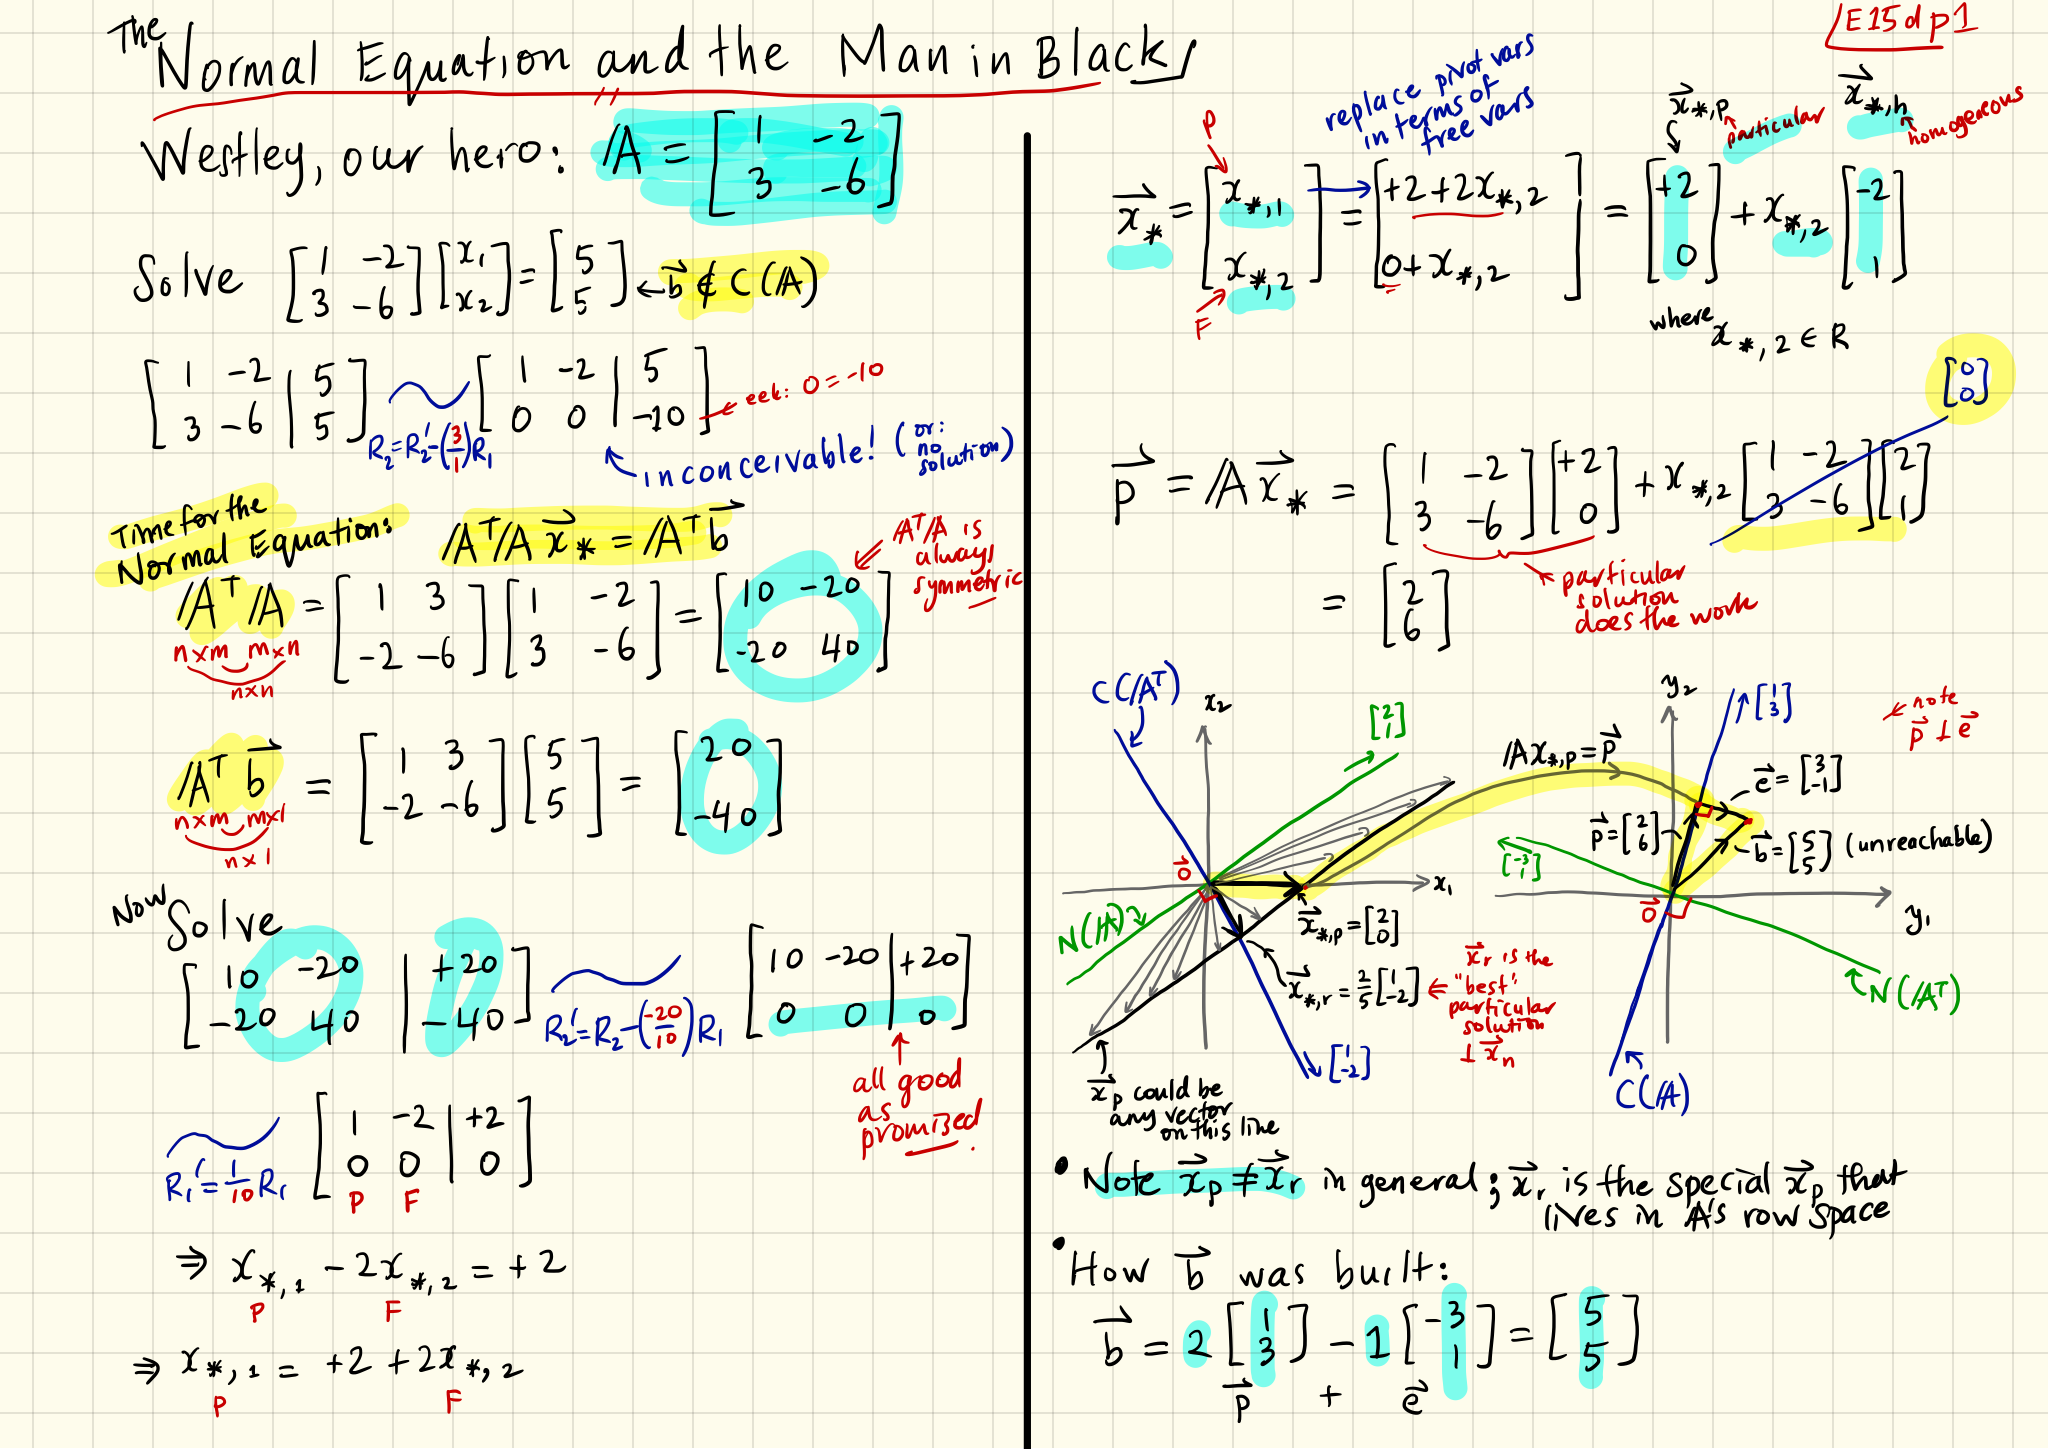 The Normal Equation and the Man in Black
Westley, our hero: A = [1 -2; 3 -6]
Solve [1 -2; 3 -6] [x₁; x₂] = [5; 5] ← b⃗ ∉ C(A)
[1 -2 | 5; 3 -6 | 5] ~ [1 -2 | 5; 0 0 | -10] ← eek: 0 = -10
R₂ = R₂' - (3/1) R₁
inconceivable! (or: no solution)
Time for the
Normal Equation: AᵀA x⃗* = Aᵀ b⃗
AᵀA = [1 3; -2 -6] [1 -2; 3 -6] = [10 -20; -20 40]
n×m m×n
n×n
⇐ AᵀA is
always
symmetric
Aᵀ b⃗ = [1 3; -2 -6] [5; 5] = [20; -40]
n×m m×1
n×1
Now Solve
[10 -20 | +20; -20 40 | -40] ~ [10 -20 | +20; 0 0 | 0]
R₂' = R₂ - (-20/10) R₁
all good
as
promised.
~ [1 -2 | +2; 0 0 | 0]
R₁' = 1/10 R₁
P F
⇒ x*,1 - 2x*,2 = +2
P F
⇒ x*,1 = +2 + 2x*,2
P F
E15d p1
replace pivot vars
in terms of
free vars
x⃗*,p particular
x⃗*,h homogeneous
P
x⃗* = [x*,1; x*,2] = [+2 + 2x*,2; 0 + x*,2] = [+2; 0] + x*,2 [-2; 1]
F
where x*,2 ∈ R
[0; 0]
p⃗ = A x⃗* = [1 -2; 3 -6] [+2; 0] + x*,2 [1 -2; 3 -6] [2; 1]
= [2; 6]
particular
solution
does the work
C(Aᵀ)
x₂
[2; 1]
0⃗
x₁
N(A)
x⃗*,p = [2; 0]
x⃗*,r = 2/5 [1; -2]
⇐ x⃗r is the
"best"
particular
solution
⊥ x⃗n
[1; -2]
x⃗p could be
any vector
on this line
A x*,p = p⃗
y₂
[1; 3]
← note
p⃗ ⊥ e⃗
e⃗ = [3; -1]
p⃗ = [2; 6]
b⃗ = [5; 5] (unreachable)
[-3; 1]
0⃗
y₁
N(Aᵀ)
C(A)
• Note x⃗p ≠ x⃗r in general; x⃗r is the special x⃗p that
lives in A's row space
• How b⃗ was built:
b⃗ = 2 [1; 3] - 1 [-3; 1] = [5; 5]
p⃗ + e⃗